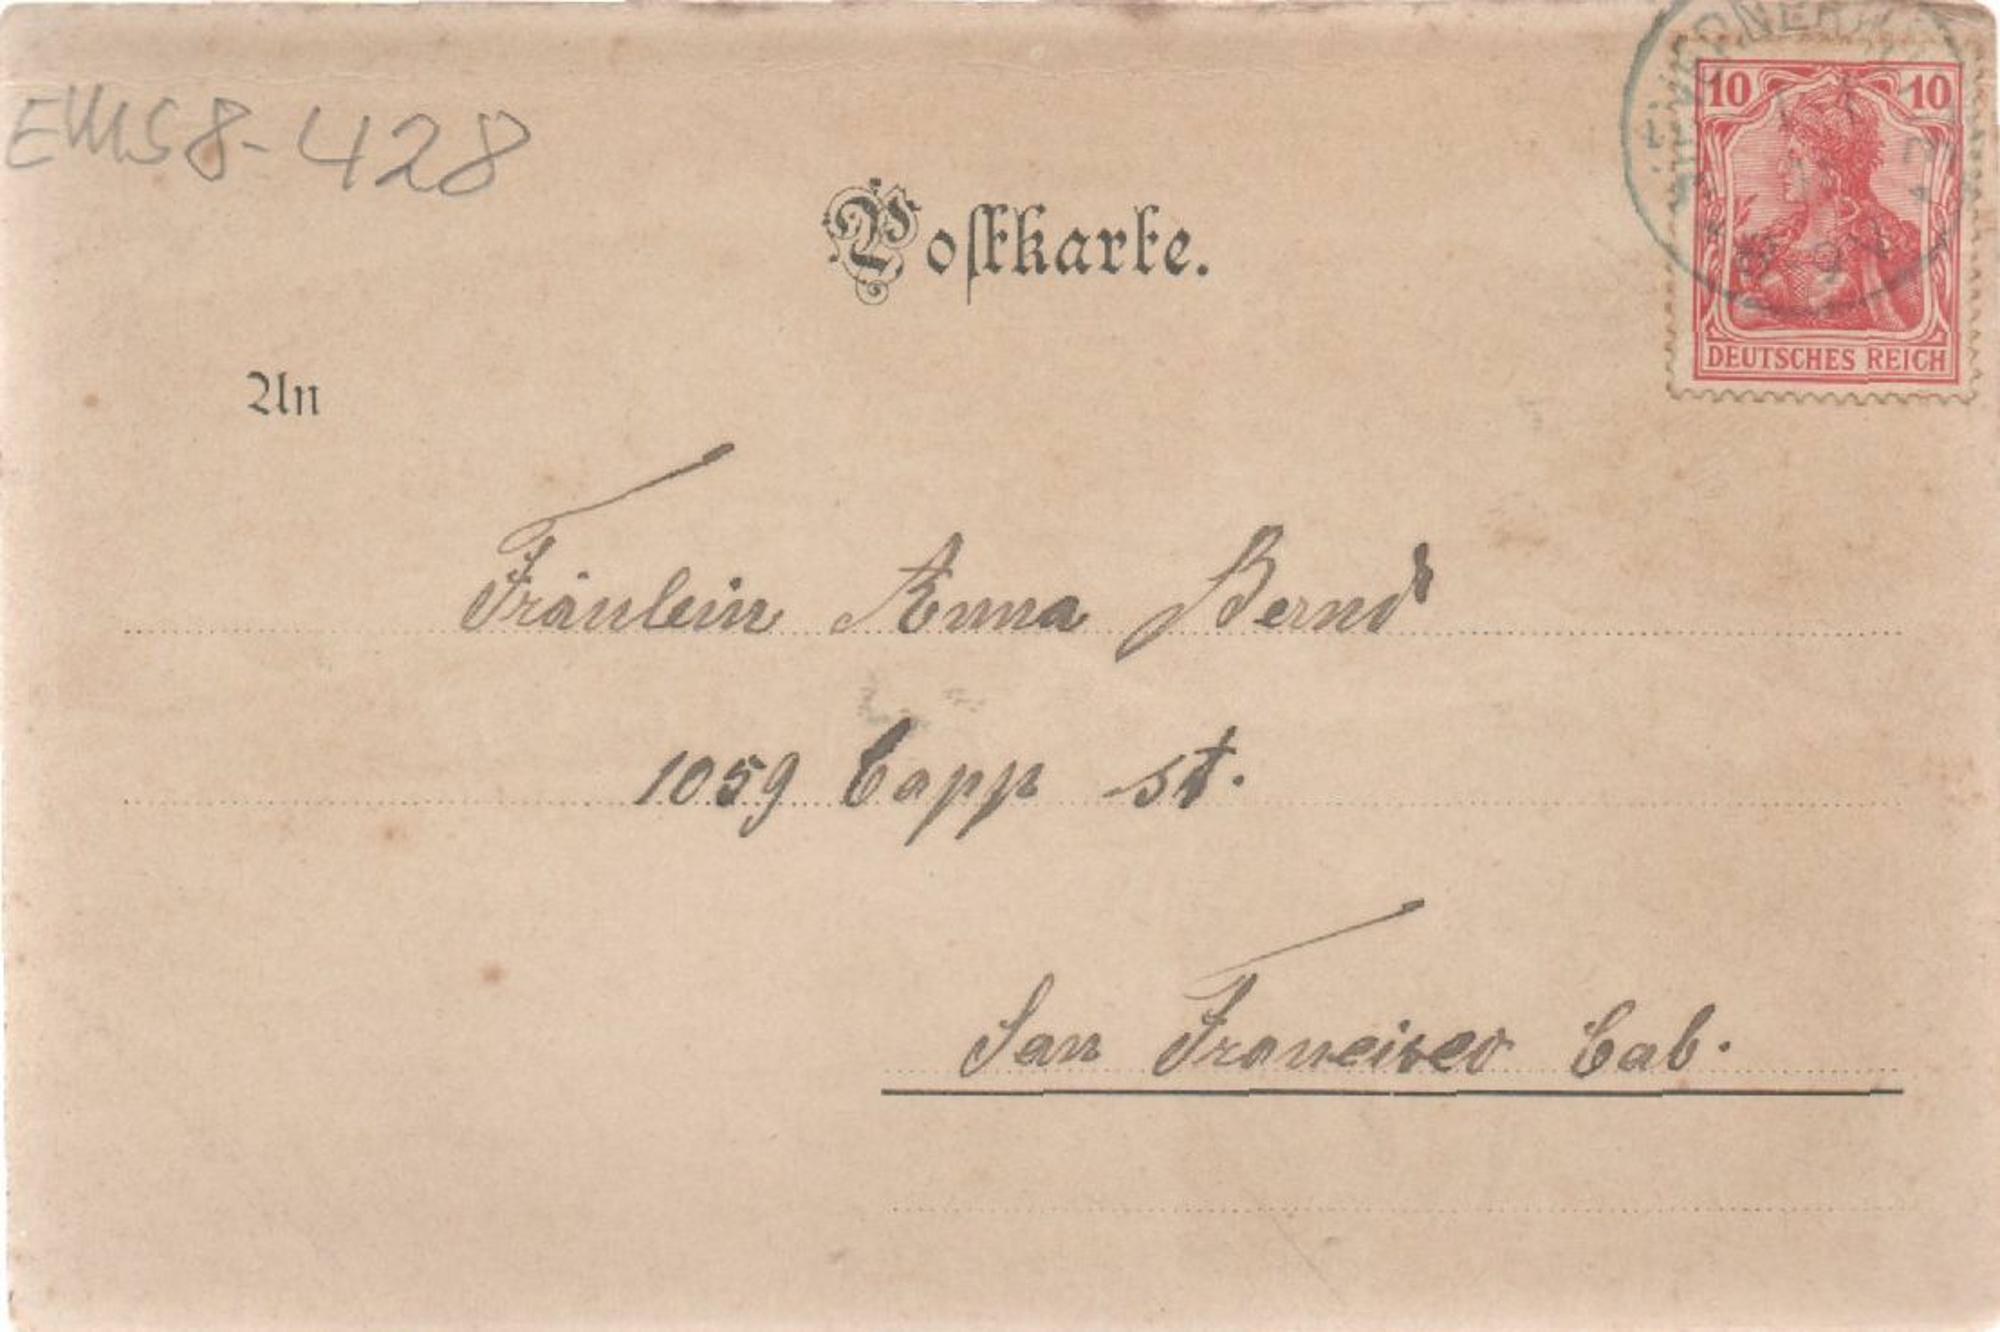 EMS8-428
Postkarte.
10 10
DEUTSCHES REICH
An
Fräulein Anna Bernd
1059 Capp St.
San Francisco Cal.